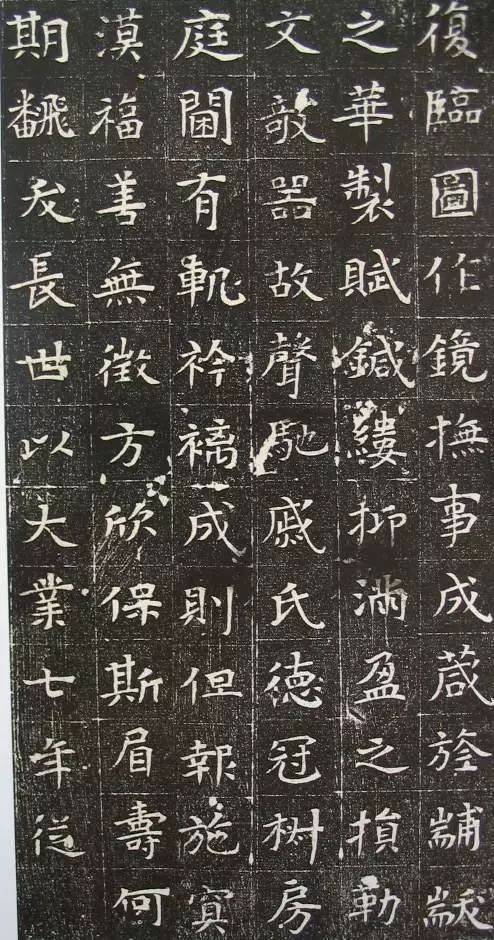 復臨圖作鏡撫事成葴旍黼黻
之華製賦鍼縷抑滿盈之損勒
文敧器故聲馳戚氏德冠椒房
庭閫有軌衿褵成則但報施冥
漠福善無徵方欣保斯眉壽何
期飜夭長世以大業七年從